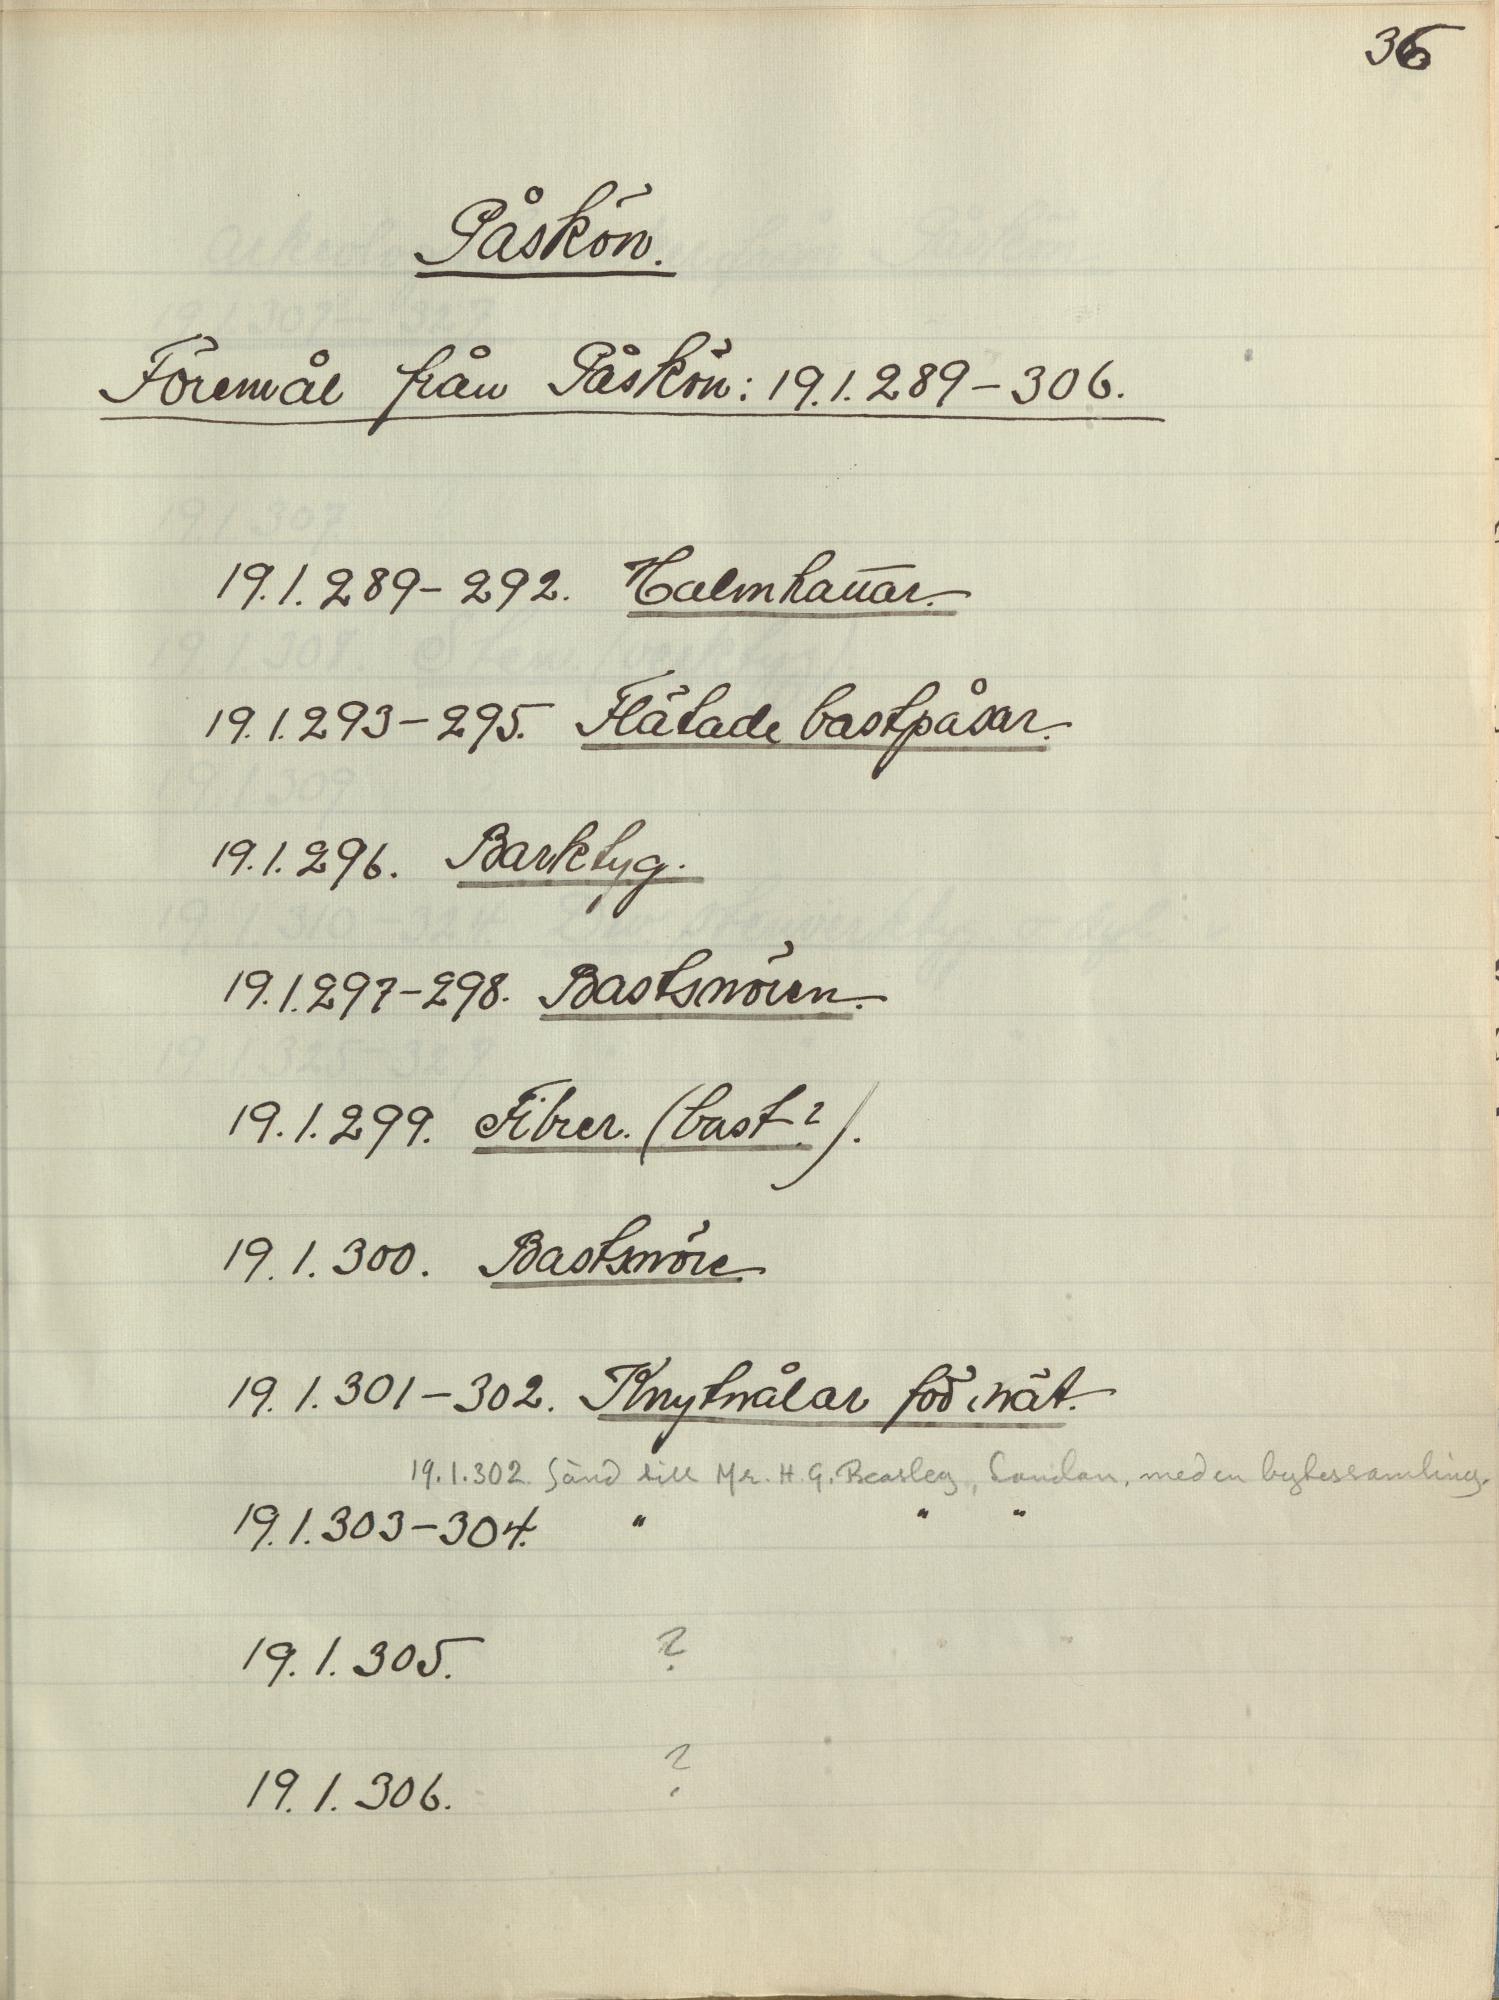 36
Påskön.
Föremål från Påskön: 19.1.289-306.
19.1.289-292. Halmhattar.
19.1.293-295. Flätade bastpåsar.
19.1.296. Barktyg.
19.1.297-298. Bastsnören.
19.1.299. Fibrer. (bast?).
19.1.300. Bastsnöre.
19.1.301-302. Knytnålar för nät.
19.1.302. Sänd till Mr. H. G. Beasley, London, med en bytessamling.
19.1.303-304. " " "
19.1.305. ?
19.1.306. ?